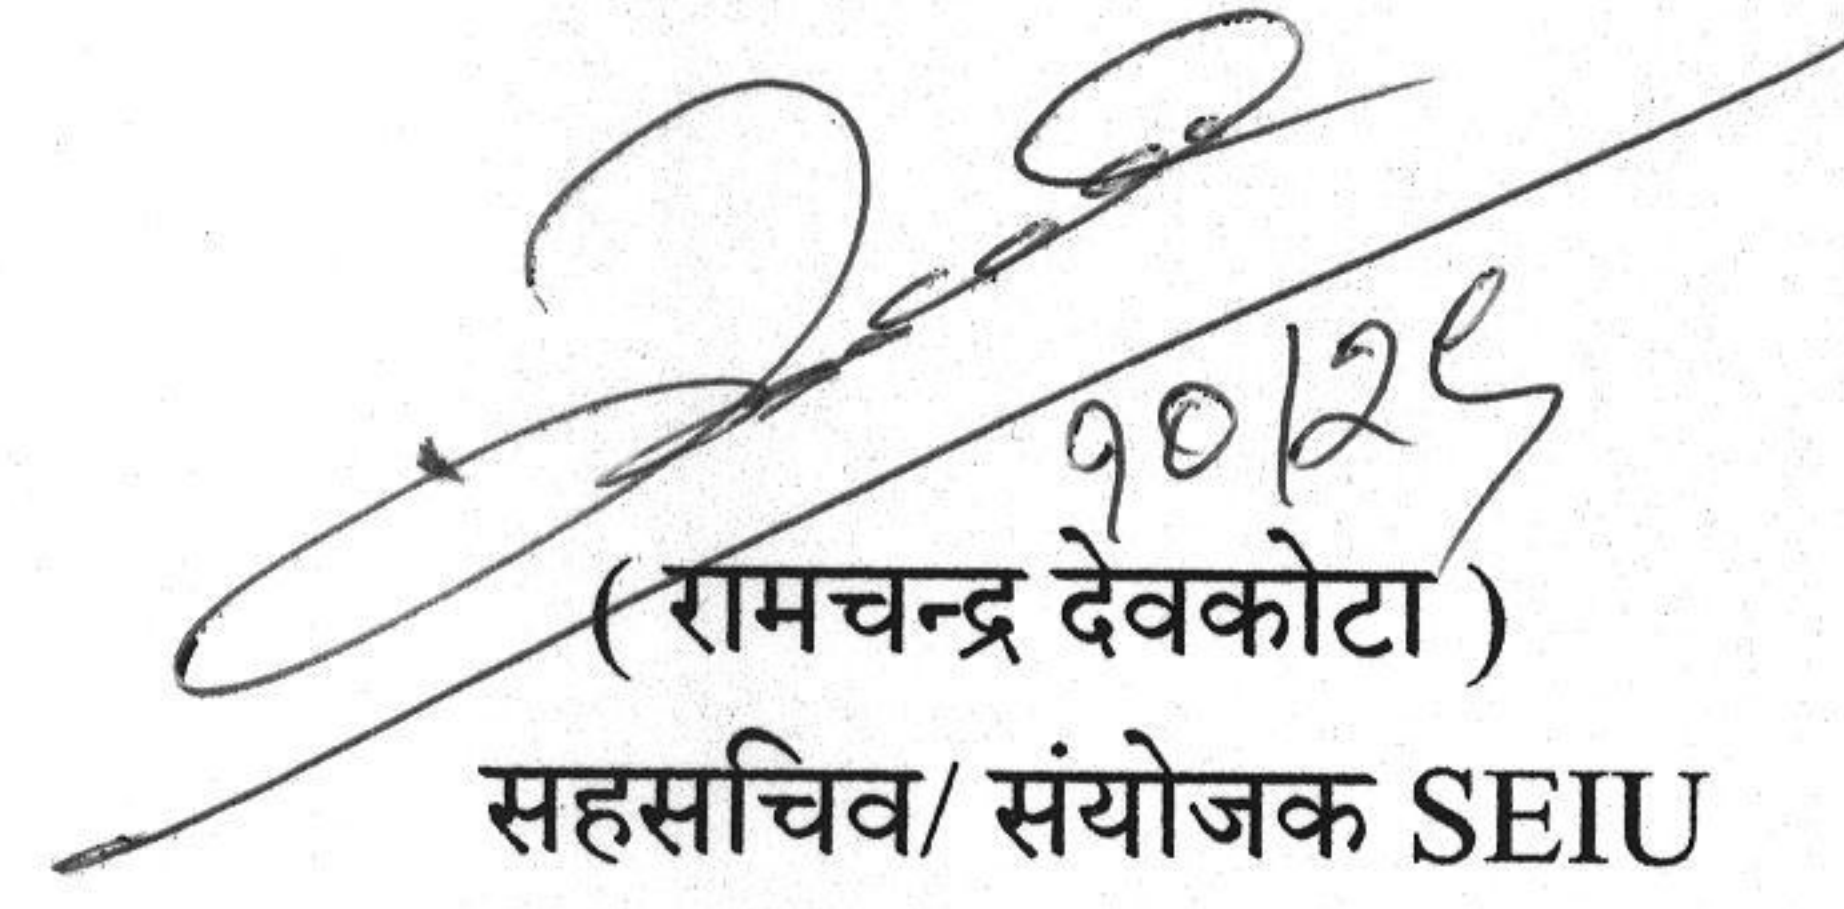 १०/२९
( रामचन्द्र देवकोटा )
सहसचिव/ संयोजक SEIU